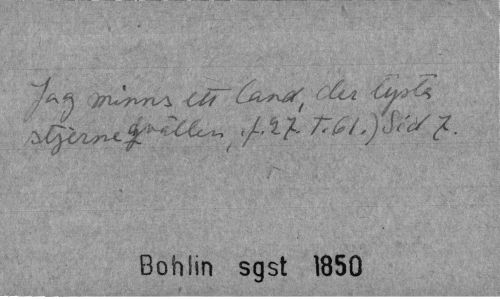 Jag minns ett land, der tysta
stjerneqvällen, f. 27 T. 61.) Sid 7.
Bohlin sgst 1850